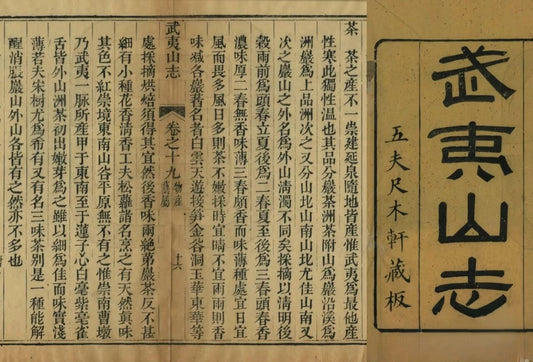 武夷山志
五夫尺木軒藏板
茶 茶之產不一崇建延泉隨地皆產惟武夷爲最他產
性寒此獨性温也其品分巖茶洲茶附山爲巖沿溪爲
洲巖爲上品洲次之又分山北山南山北尤佳山南又
次之巖山之外名爲外山清濁不同矣採摘以清明後
穀雨前爲頭春立夏後爲二春夏至後爲三春頭春香
濃味厚二春無香味薄三春頗香而味薄種處宜日宜
風而畏多風日多則茶不嫩採時宜晴不宜雨雨則香
味減各巖著名者白雲天遊接笋金谷洞玉華東華等
武夷山志 卷之十九 物產 十六
處採摘烘焙須得其宜然後香味兩絶第巖茶反不甚
細有小種花香清香工夫松蘿諸名烹之有天然真味
其色不紅崇境東南山谷平原無不有之惟崇南曹墩
乃武夷一脈所產甲于東南至于蓮子心白毫紫毫雀
舌皆外山洲茶初出嫩芽爲之雖以細爲佳而味實淺
薄若夫宋樹尤爲希有又有名三味茶別是一種能解
醒消脹巖山外山各皆有之然亦不多也